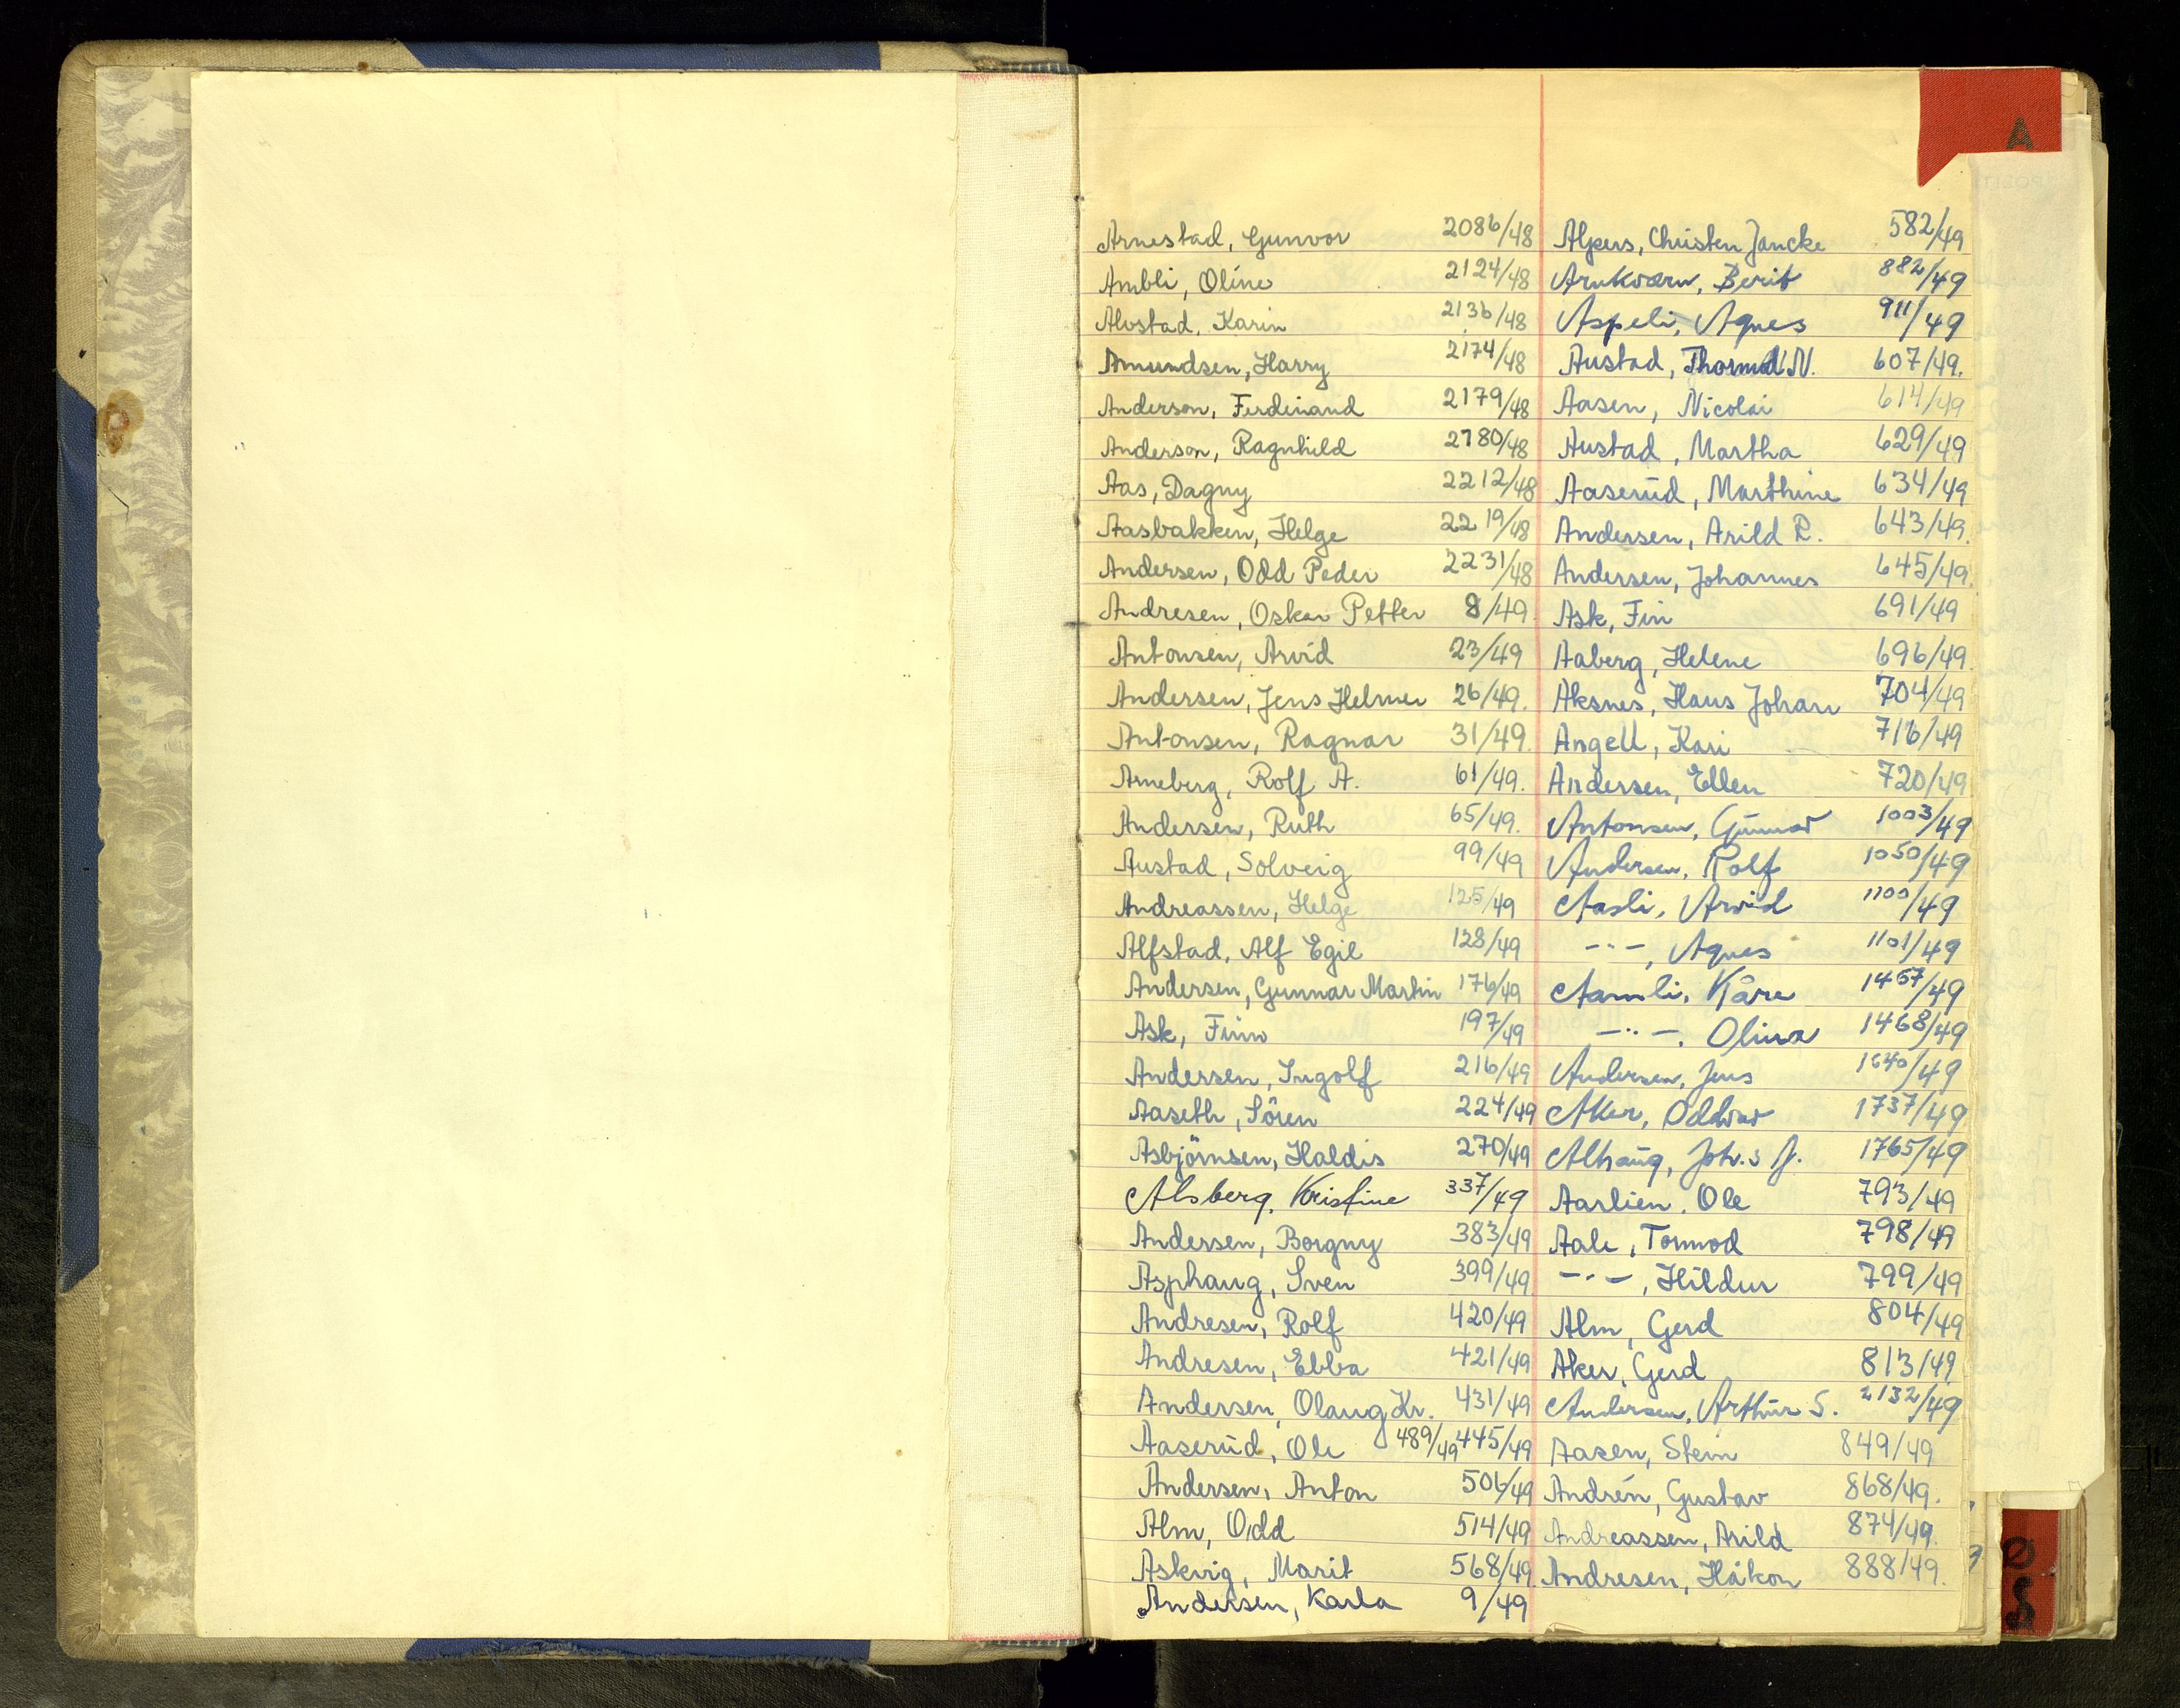 A
Arnestad, Gunvor 2086/48
Ambli, Oline 2124/48
Alvstad, Karin 2136/48
Amundsen, Harry 2174/48
Anderson, Ferdinand 2179/48
Anderson, Ragnhild 2180/48
Aas, Dagny 2212/48
Aasbakken, Helge 2219/48
Andersen, Odd Peder 2231/48
Andresen, Oskar Petter 8/49
Antonsen, Arvid 23/49
Andersen, Jens Helmer 26/49.
Antonsen, Ragnar 31/49.
Arneberg, Rolf A. 61/49.
Andersen, Ruth 65/49.
Austad, Solveig 99/49
Andreassen, Helge 125/49
Alfstad, Alf Egil 128/49
Andersen, Gunnar Martin 176/49
Ask, Finn 197/49
Andersen, Ingolf 216/49
Aaseth, Sören 224/49
Asbjörnsen, Haldis 270/49
Alsberg, Kristine 337/49
Andersen, Borgny 383/49
Asphaug, Sven 399/49
Andresen, Rolf 420/49
Andresen, Ebba 421/49
Andersen, Olaug Kr. 431/49
Aaserud, Ole 489/49 445/49
Andersen, Anton 506/49
Alm, Odd 514/49
Askvig, Marit 568/49
Andersen, Karla 9/49
Christen Jancke 582/49
Arnkværn, Berit 882/49
Aspeli, Agnes 911/49
Austad, Thormod N. 607/49.
Aasen, Nicolai 614/49
Austad, Martha 629/49
Aaserud, Marthine 634/49
Andersen, Arild R. 643/49.
Andersen, Johannes 645/49.
Ask, Finn 691/49
Aaberg, Helene 696/49.
Aksnes, Hans Johan 704/49
Angell, Kari 716/49
Andersen, Ellen 720/49
Antonsen, Gunnar 1003/49
Andersen, Rolf 1050/49
Aasli, Arvid 1100/49
-"-, Agnes 1101/49
Aamli, Kåre 1467/49
-"-, Olina 1468/49
Andersen, Jens 1640/49
Aker, Oddvar 1737/49
Alhaug, Joh.s J. 1765/49
Aarlien, Ole 793/49
Aale, Tormod 798/49
-"-, Hildur 799/49
Alm, Gerd 804/49
Aker, Gerd 813/49
Andersen, Arthur S. 2132/49
Aasen, Stein 849/49
Andrén, Gustav 868/49.
Andreassen, Arild 874/49.
Andresen, Håkon 888/49.
Ø